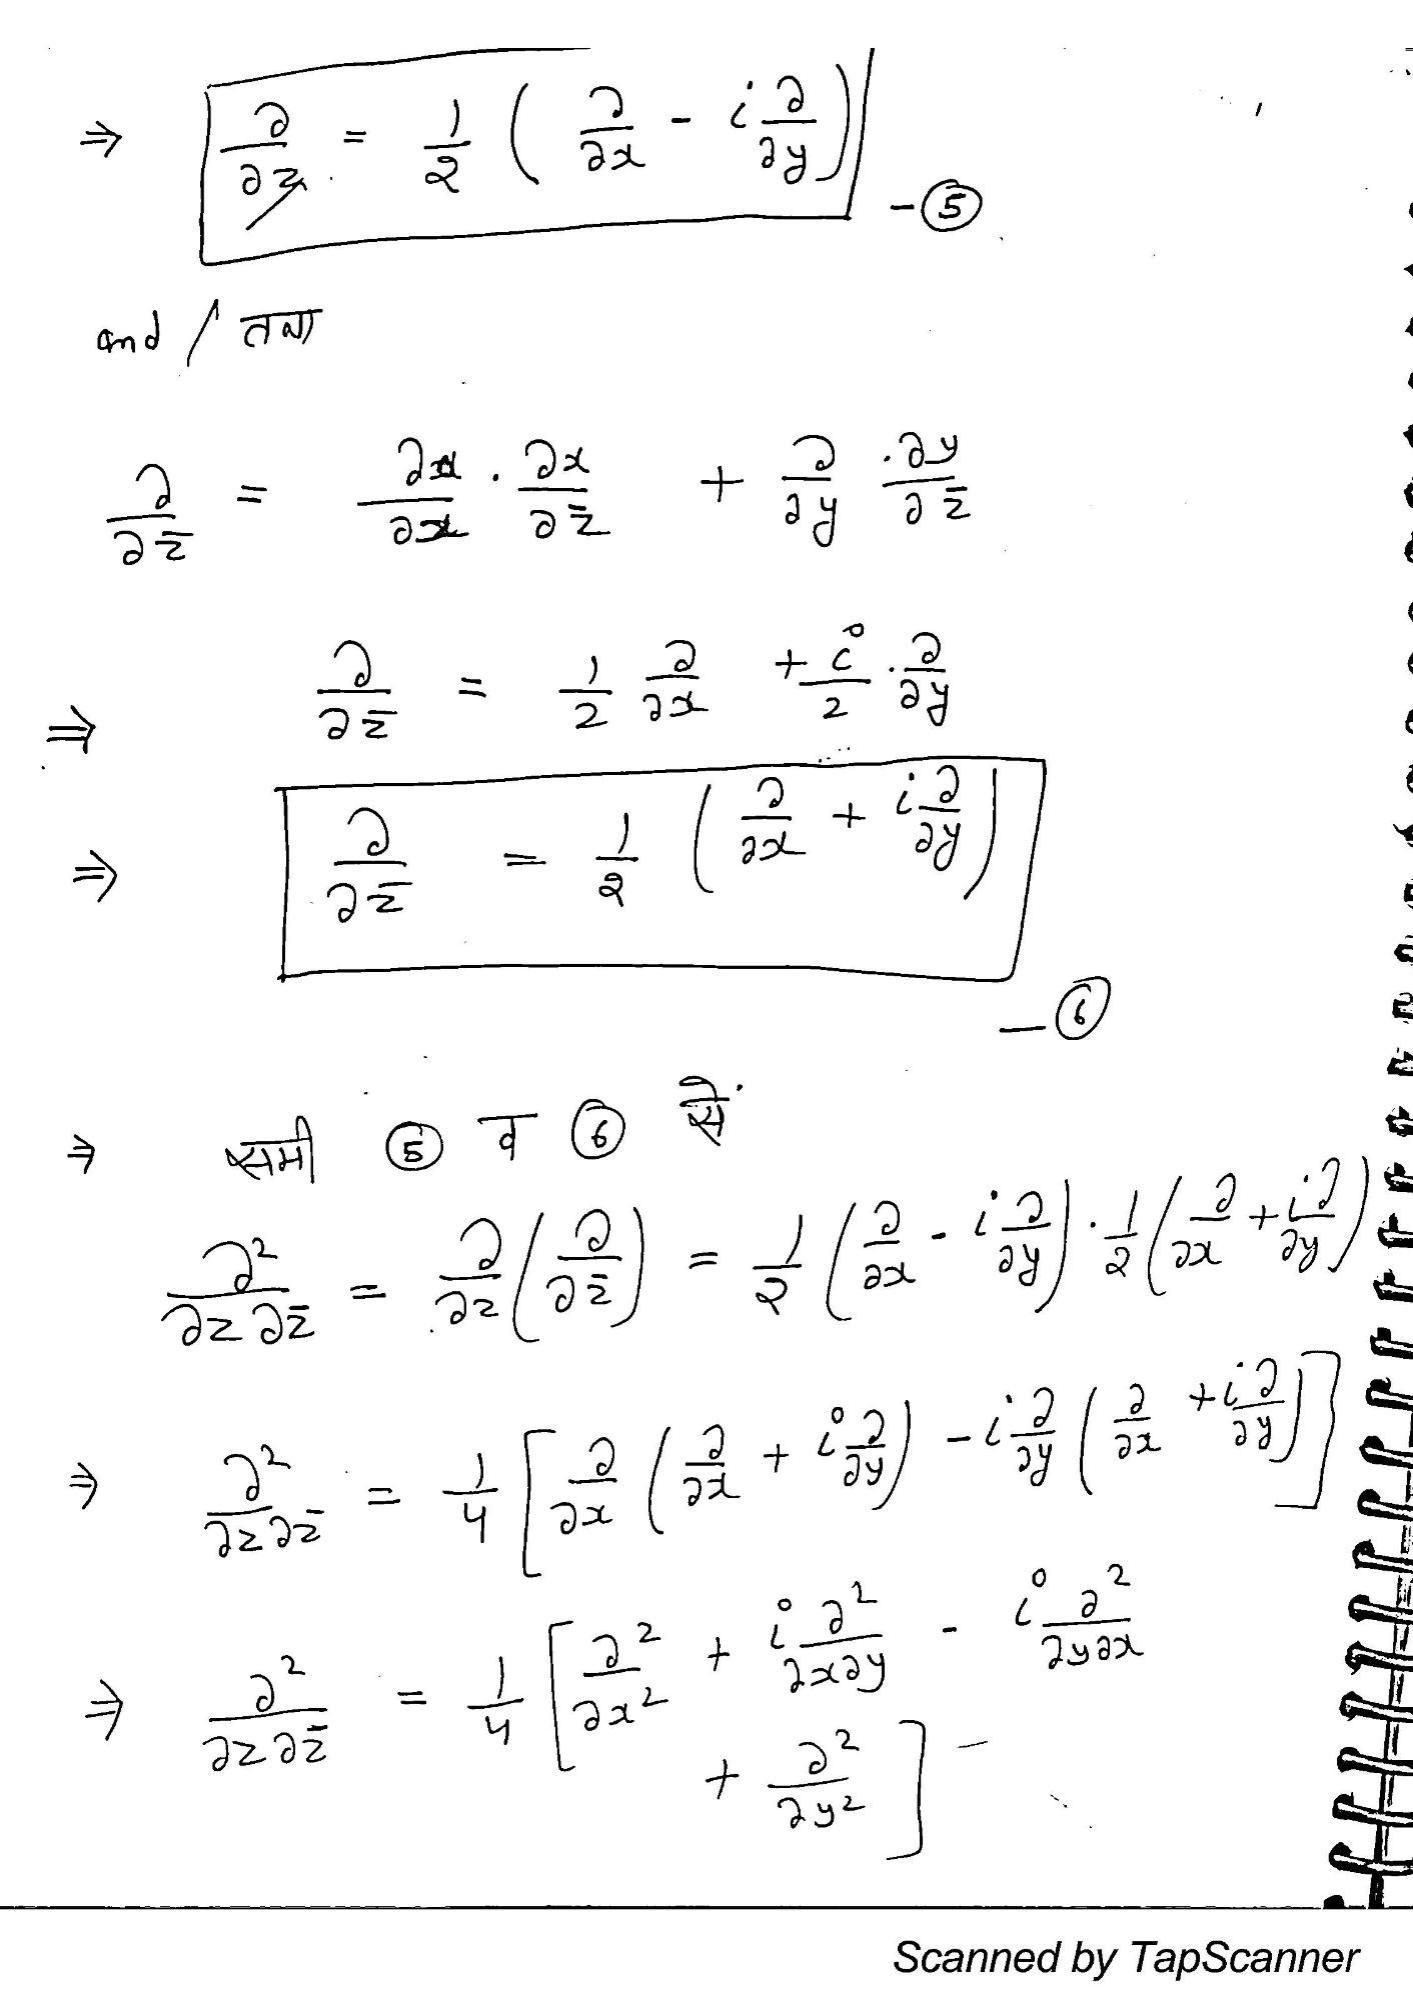 ⇒ ∂/∂z = 1/2 ( ∂/∂x - i ∂/∂y ) - ⑤
and / तथा
∂/∂z̄ = ∂x/∂x · ∂x/∂z̄ + ∂/∂y · ∂y/∂z̄
⇒ ∂/∂z̄ = 1/2 ∂/∂x + i/2 · ∂/∂y
⇒ ∂/∂z̄ = 1/2 ( ∂/∂x + i ∂/∂y )
— ⑥
⇒ समी ⑤ व ⑥ से
∂²/∂z∂z̄ = ∂/∂z ( ∂/∂z̄ ) = 1/2 ( ∂/∂x - i ∂/∂y ) · 1/2 ( ∂/∂x + i ∂/∂y )
⇒ ∂²/∂z∂z̄ = 1/4 [ ∂/∂x ( ∂/∂x + i ∂/∂y ) - i ∂/∂y ( ∂/∂x + i ∂/∂y ) ]
⇒ ∂²/∂z∂z̄ = 1/4 [ ∂²/∂x² + i ∂²/∂x∂y - i ∂²/∂y∂x
+ ∂²/∂y² ] -
Scanned by TapScanner